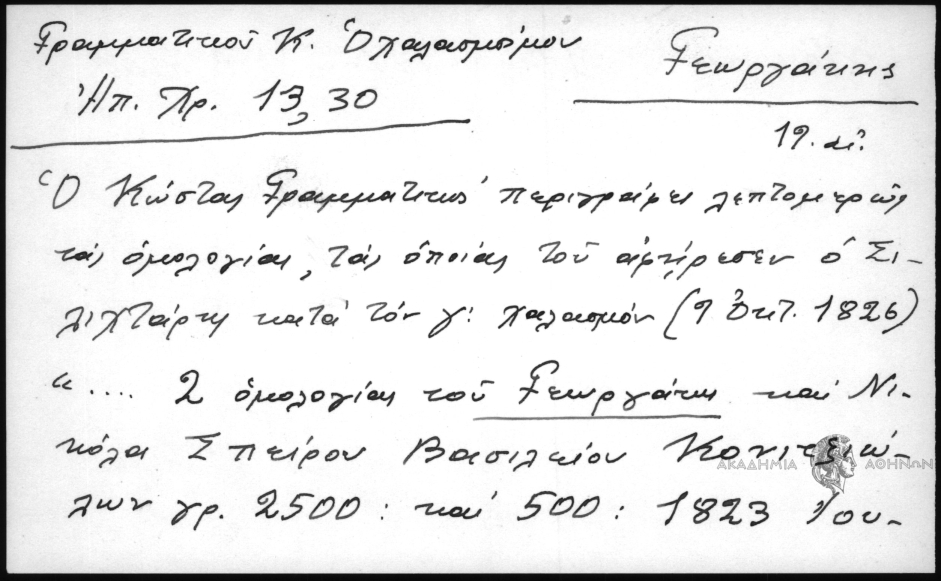 Γραμματικοῦ Κ. Ὁ χαλασμὸς
Γεωργάκης
Ἠπ. Χρ. 13, 30
19. αἰ.
Ὁ Κώστας Γραμματικὸς περιγράφει λεπτομερῶς
τὰς ὁμολογίας, τὰς ὁποίας τοῦ ἀφῄρεσεν ὁ Σι-
λιχτάρης κατὰ τὸν γ': χαλασμόν (9 Ὀκτ. 1826)
“.... 2 ὁμολογίας τοῦ Γεωργάκη καὶ Νι-
κόλα Σπείρου Βασιλείου Κονιτζιώ-
των γρ. 2500: καὶ 500: 1823 Ἰου-
ΑΚΑΔΗΜΙΑ ΑΘΗΝΩΝ